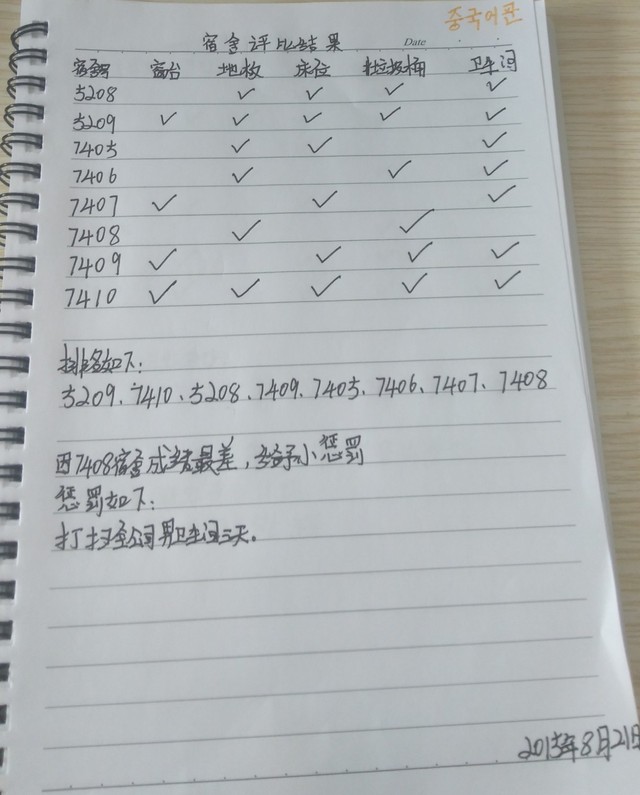 中国어관
宿舍评比结果 Date
宿舍号 窗台 地板 床位 垃圾桶 卫生间
5208 ✓ ✓ ✓ ✓
5209 ✓ ✓ ✓ ✓ ✓
7405 ✓ ✓ ✓
7406 ✓ ✓ ✓
7407 ✓ ✓ ✓
7408 ✓ ✓
7409 ✓ ✓ ✓ ✓
7410 ✓ ✓ ✓ ✓ ✓
排名如下:
5209、7410、5208、7409、7405、7406、7407、7408
因7408宿舍成绩最差,给予小惩罚
惩罚如下:
打扫至公司男卫生间三天。
2015年8月21日